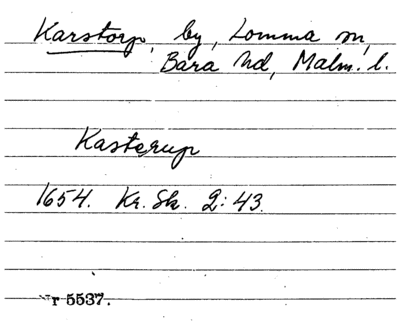 Karstorp, by, Lomma sn,
Bara hd, Malm. l.
Kasterup
1654. Kr. Sk. 2:43.
Nr 5537.